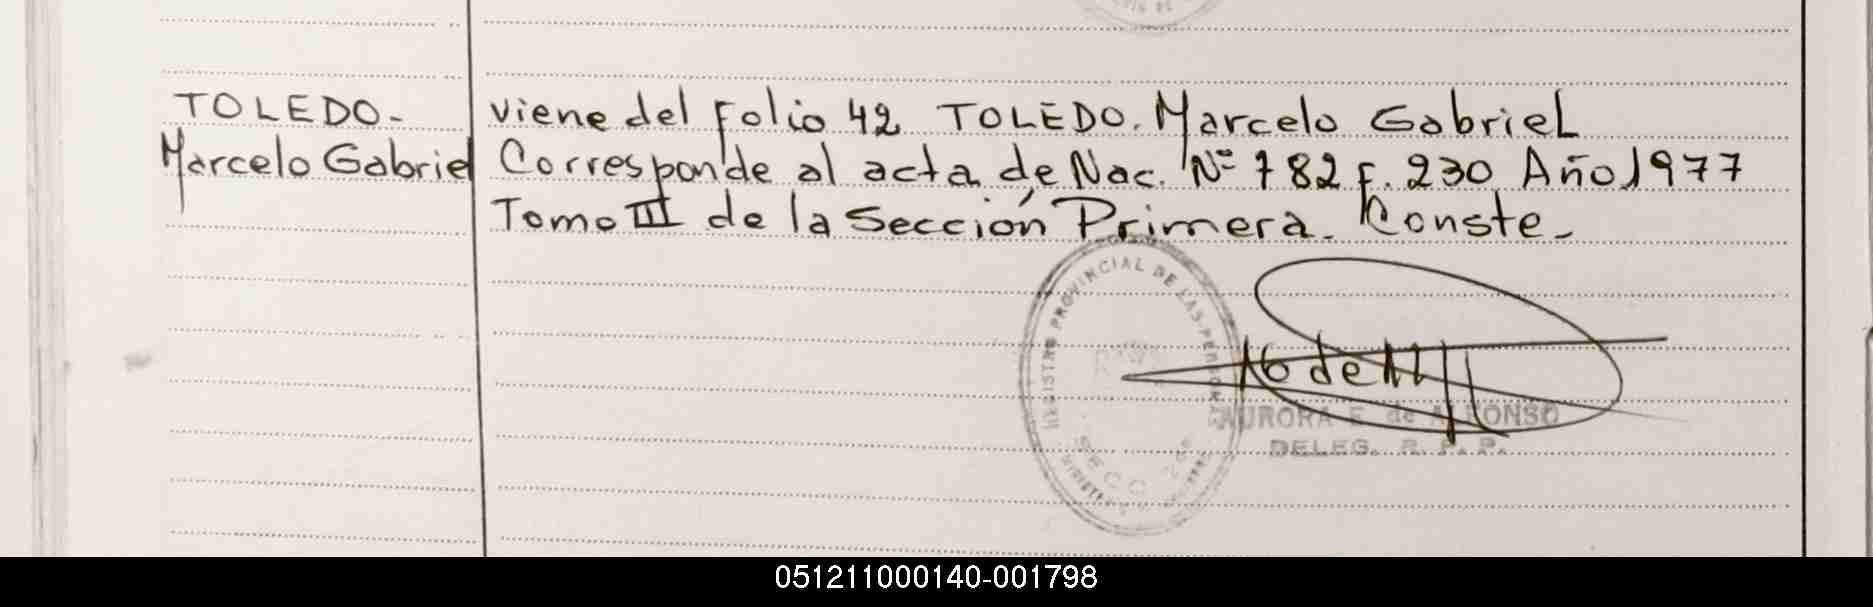 TOLEDO-
Marcelo Gabriel
viene del Folio 42 TOLEDO. Marcelo Gabriel
Corresponde al acta de Nac. Nº 782 F. 230 Año 1977
Tomo III de la Sección Primera. Conste-
REGISTRO PROVINCIAL DE LAS PERSONAS
SECC
AURORA E. de ALFONSO
DELEG. R. P. P.
051211000140-001798